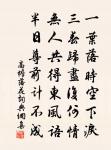 一葉落時空下淚
三春歸盡復何情
無人共得東風語
半日尊前計不成
高蟾落花詩興網集